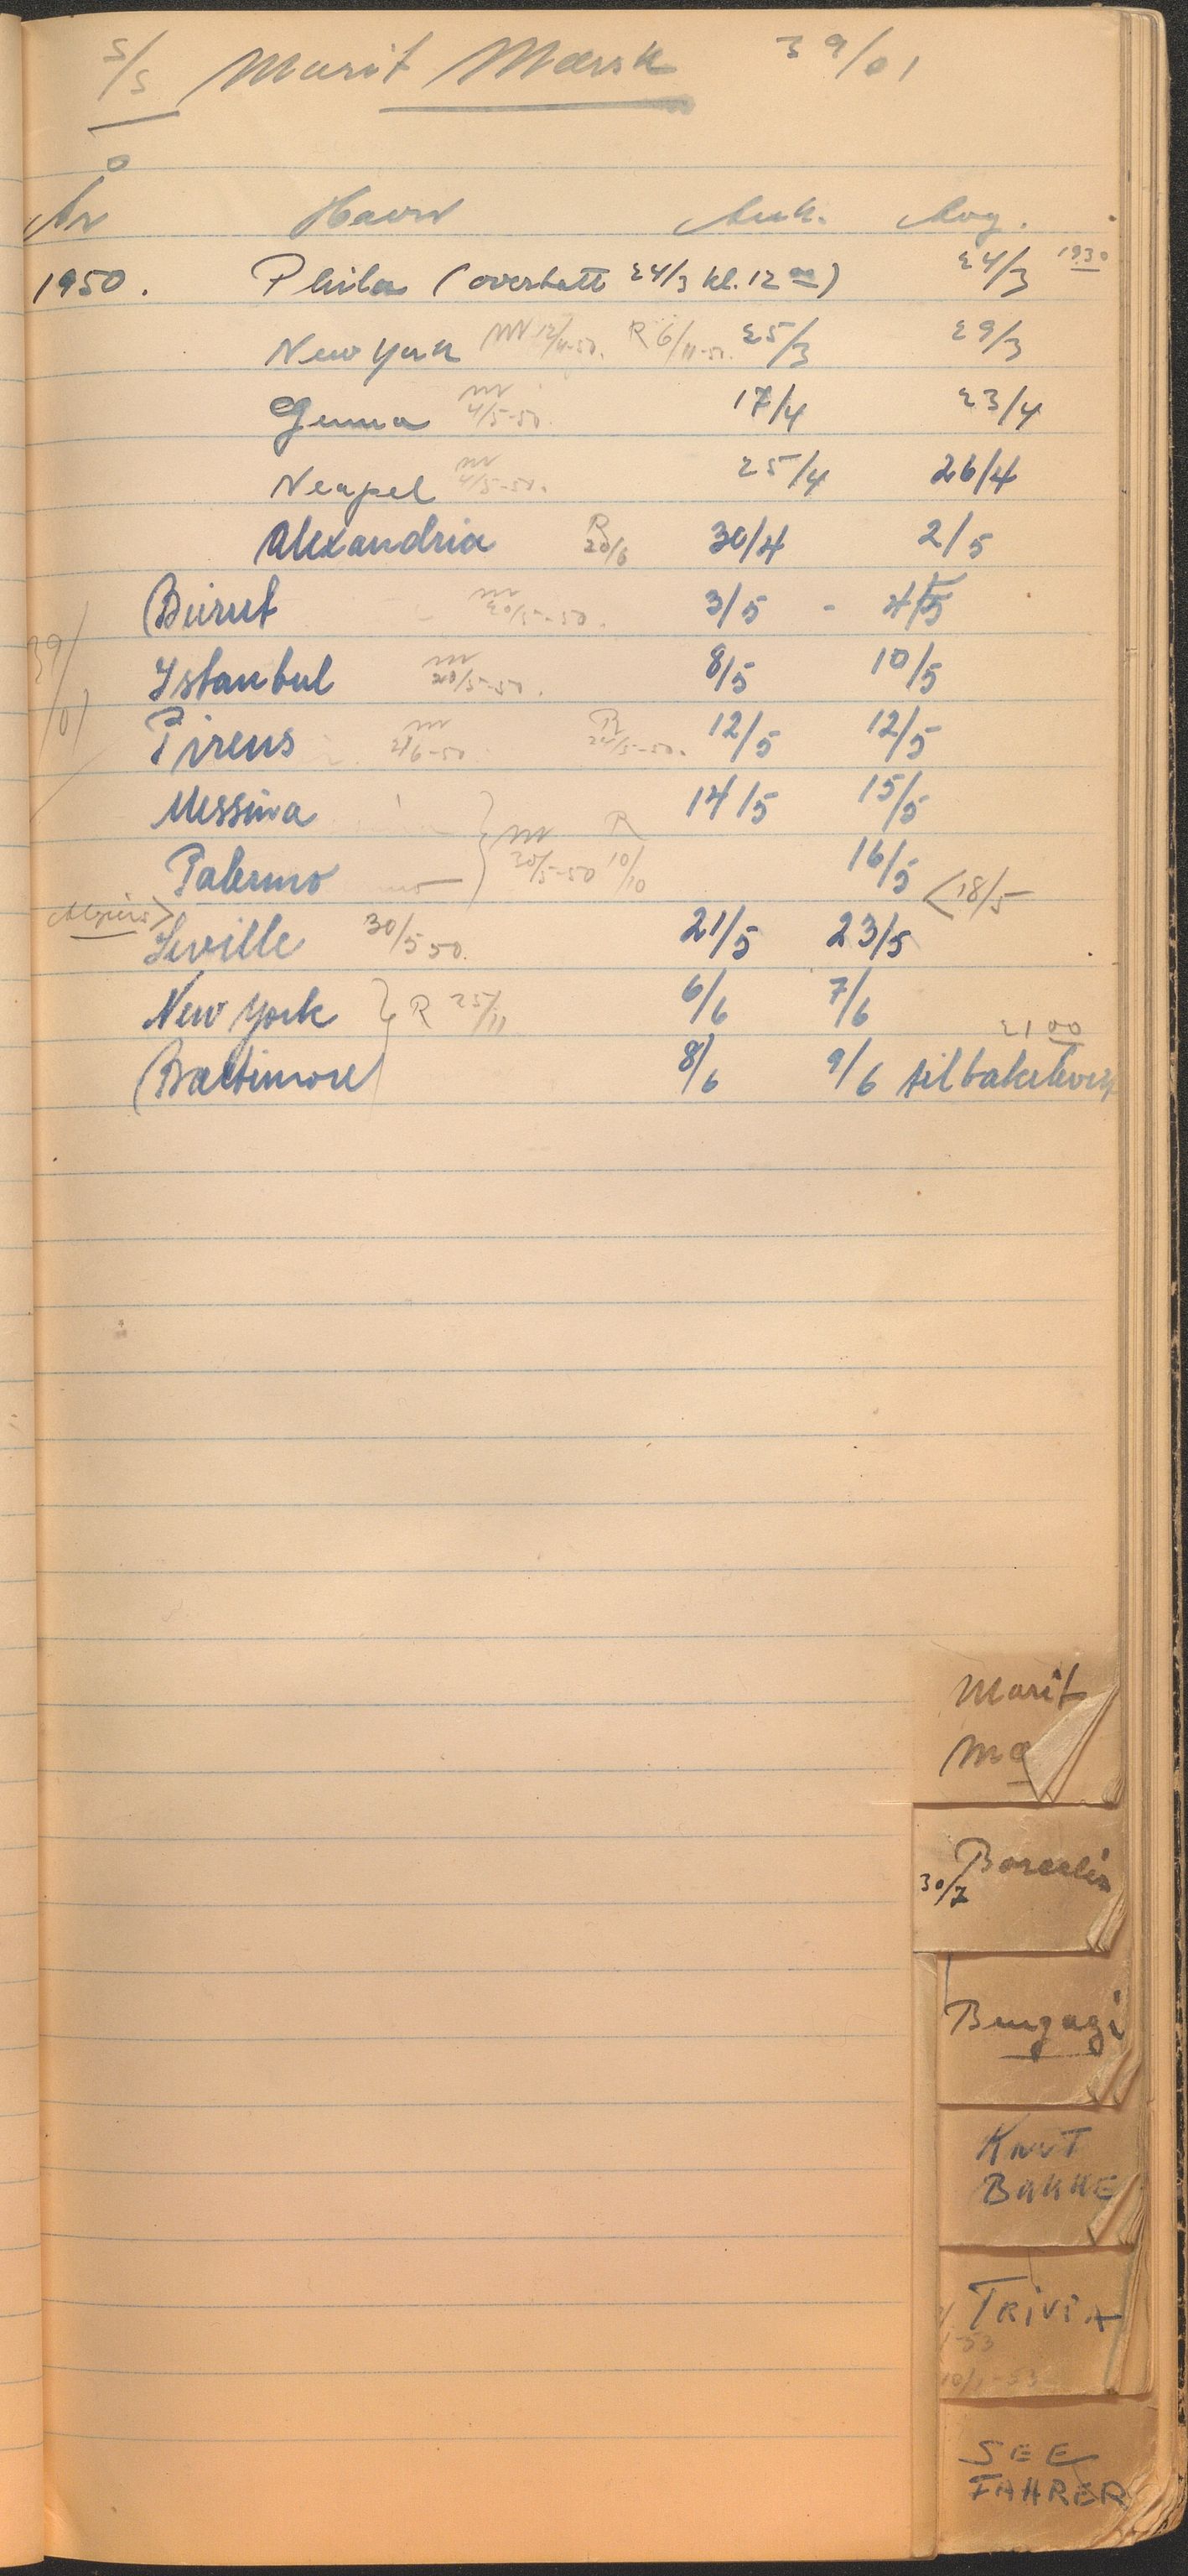 S/S Marit Mærsk 39/01
År Havn Ank. Avg.
1950. Phila (overtatt 24/3 kl. 12 00) 24/3 1930
New York M 12/11-50. R 6/11-50. 25/3 29/3
Genua M 4/5-50. 17/4 23/4
Neapel M 4/5-50. 25/4 26/4
Alexandria R 20/6 30/4 2/5
Beirut M 30/5-50. 3/5 - 4/5
39/01
Istanbul M 20/5-50. 8/5 10/5
Pireus M 2/6-50 R 24/5-50. 12/5 12/5
Messina 14/5 15/5
Palermo } M 30/5-50 R 10/10 16/5
Algiers > < 18/5
Seville 30/5 50. 21/5 23/5
New York } R 25/11 6/6 7/6
Baltimore 8/6 9/6 2100 tilbakelever
Marit
Mæ
30/7
Bengazi
KNUT
BAKKE
TRIVIA
1-53
10/1-53
SEE
FAHRER